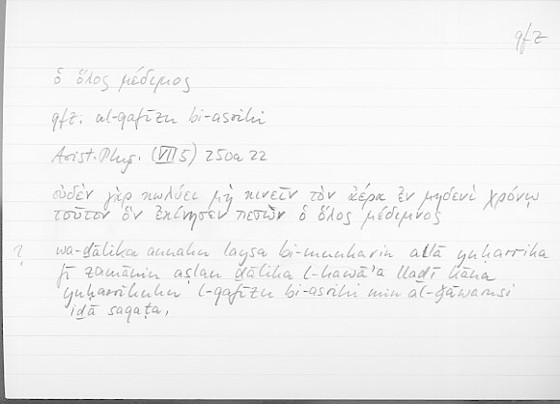 qfz
ὁ ὅλος μέδιμνος
qfz. al-qafīzu bi-asrihi
Arist. Phys. (VII 5) 250a22
οὐδὲν γὰρ κωλύει μὴ κινεῖν τὸν ἀέρα ἐν μηδενὶ χρόνῳ
τοῦτον ὃν ἐκίνησεν πεσὼν ὁ ὅλος μέδιμνος
? wa-ḏālika annahu laysa bi-munkarin allā yuḥarrika
fī zamānin aṣlan ḏālika l-hawāʾa llaḏī kāna
yuḥarrikuhu l-qafīzu bi-asrihi min al-ǧāwarsi
iḏā saqaṭa.